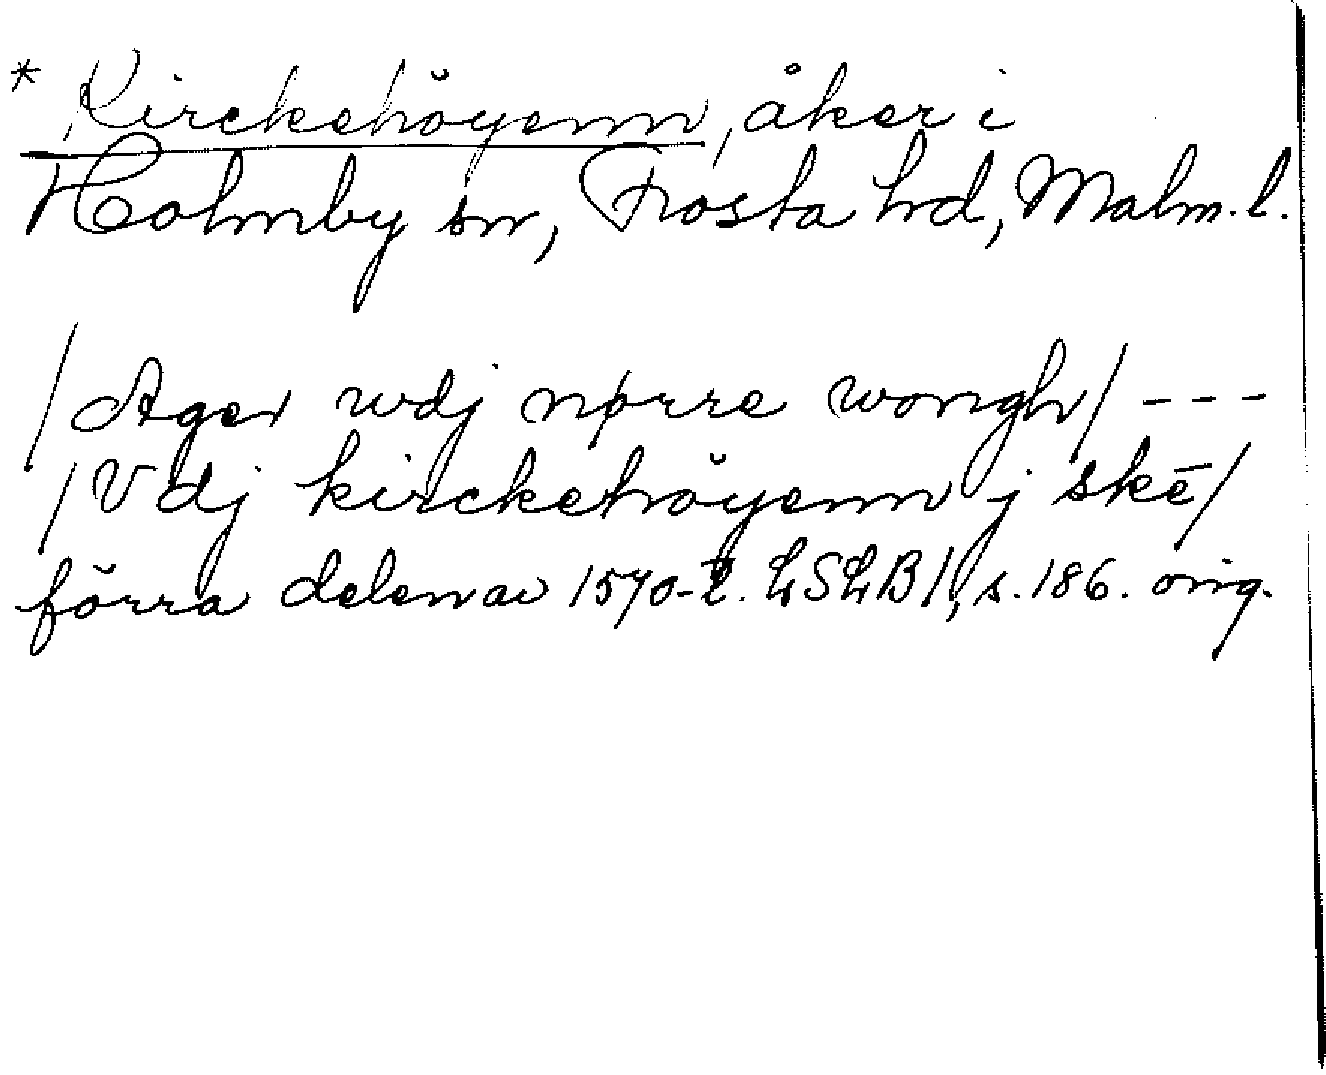 * Kirckehöyenn, åker i
Holmby sn, Frosta hd, Malm. l.
/Ager wdj nørre wongh/ ---
/Vdj kirckehöyenn j skē/
förra delen av 1570-t. LSLB I, s. 186. orig.